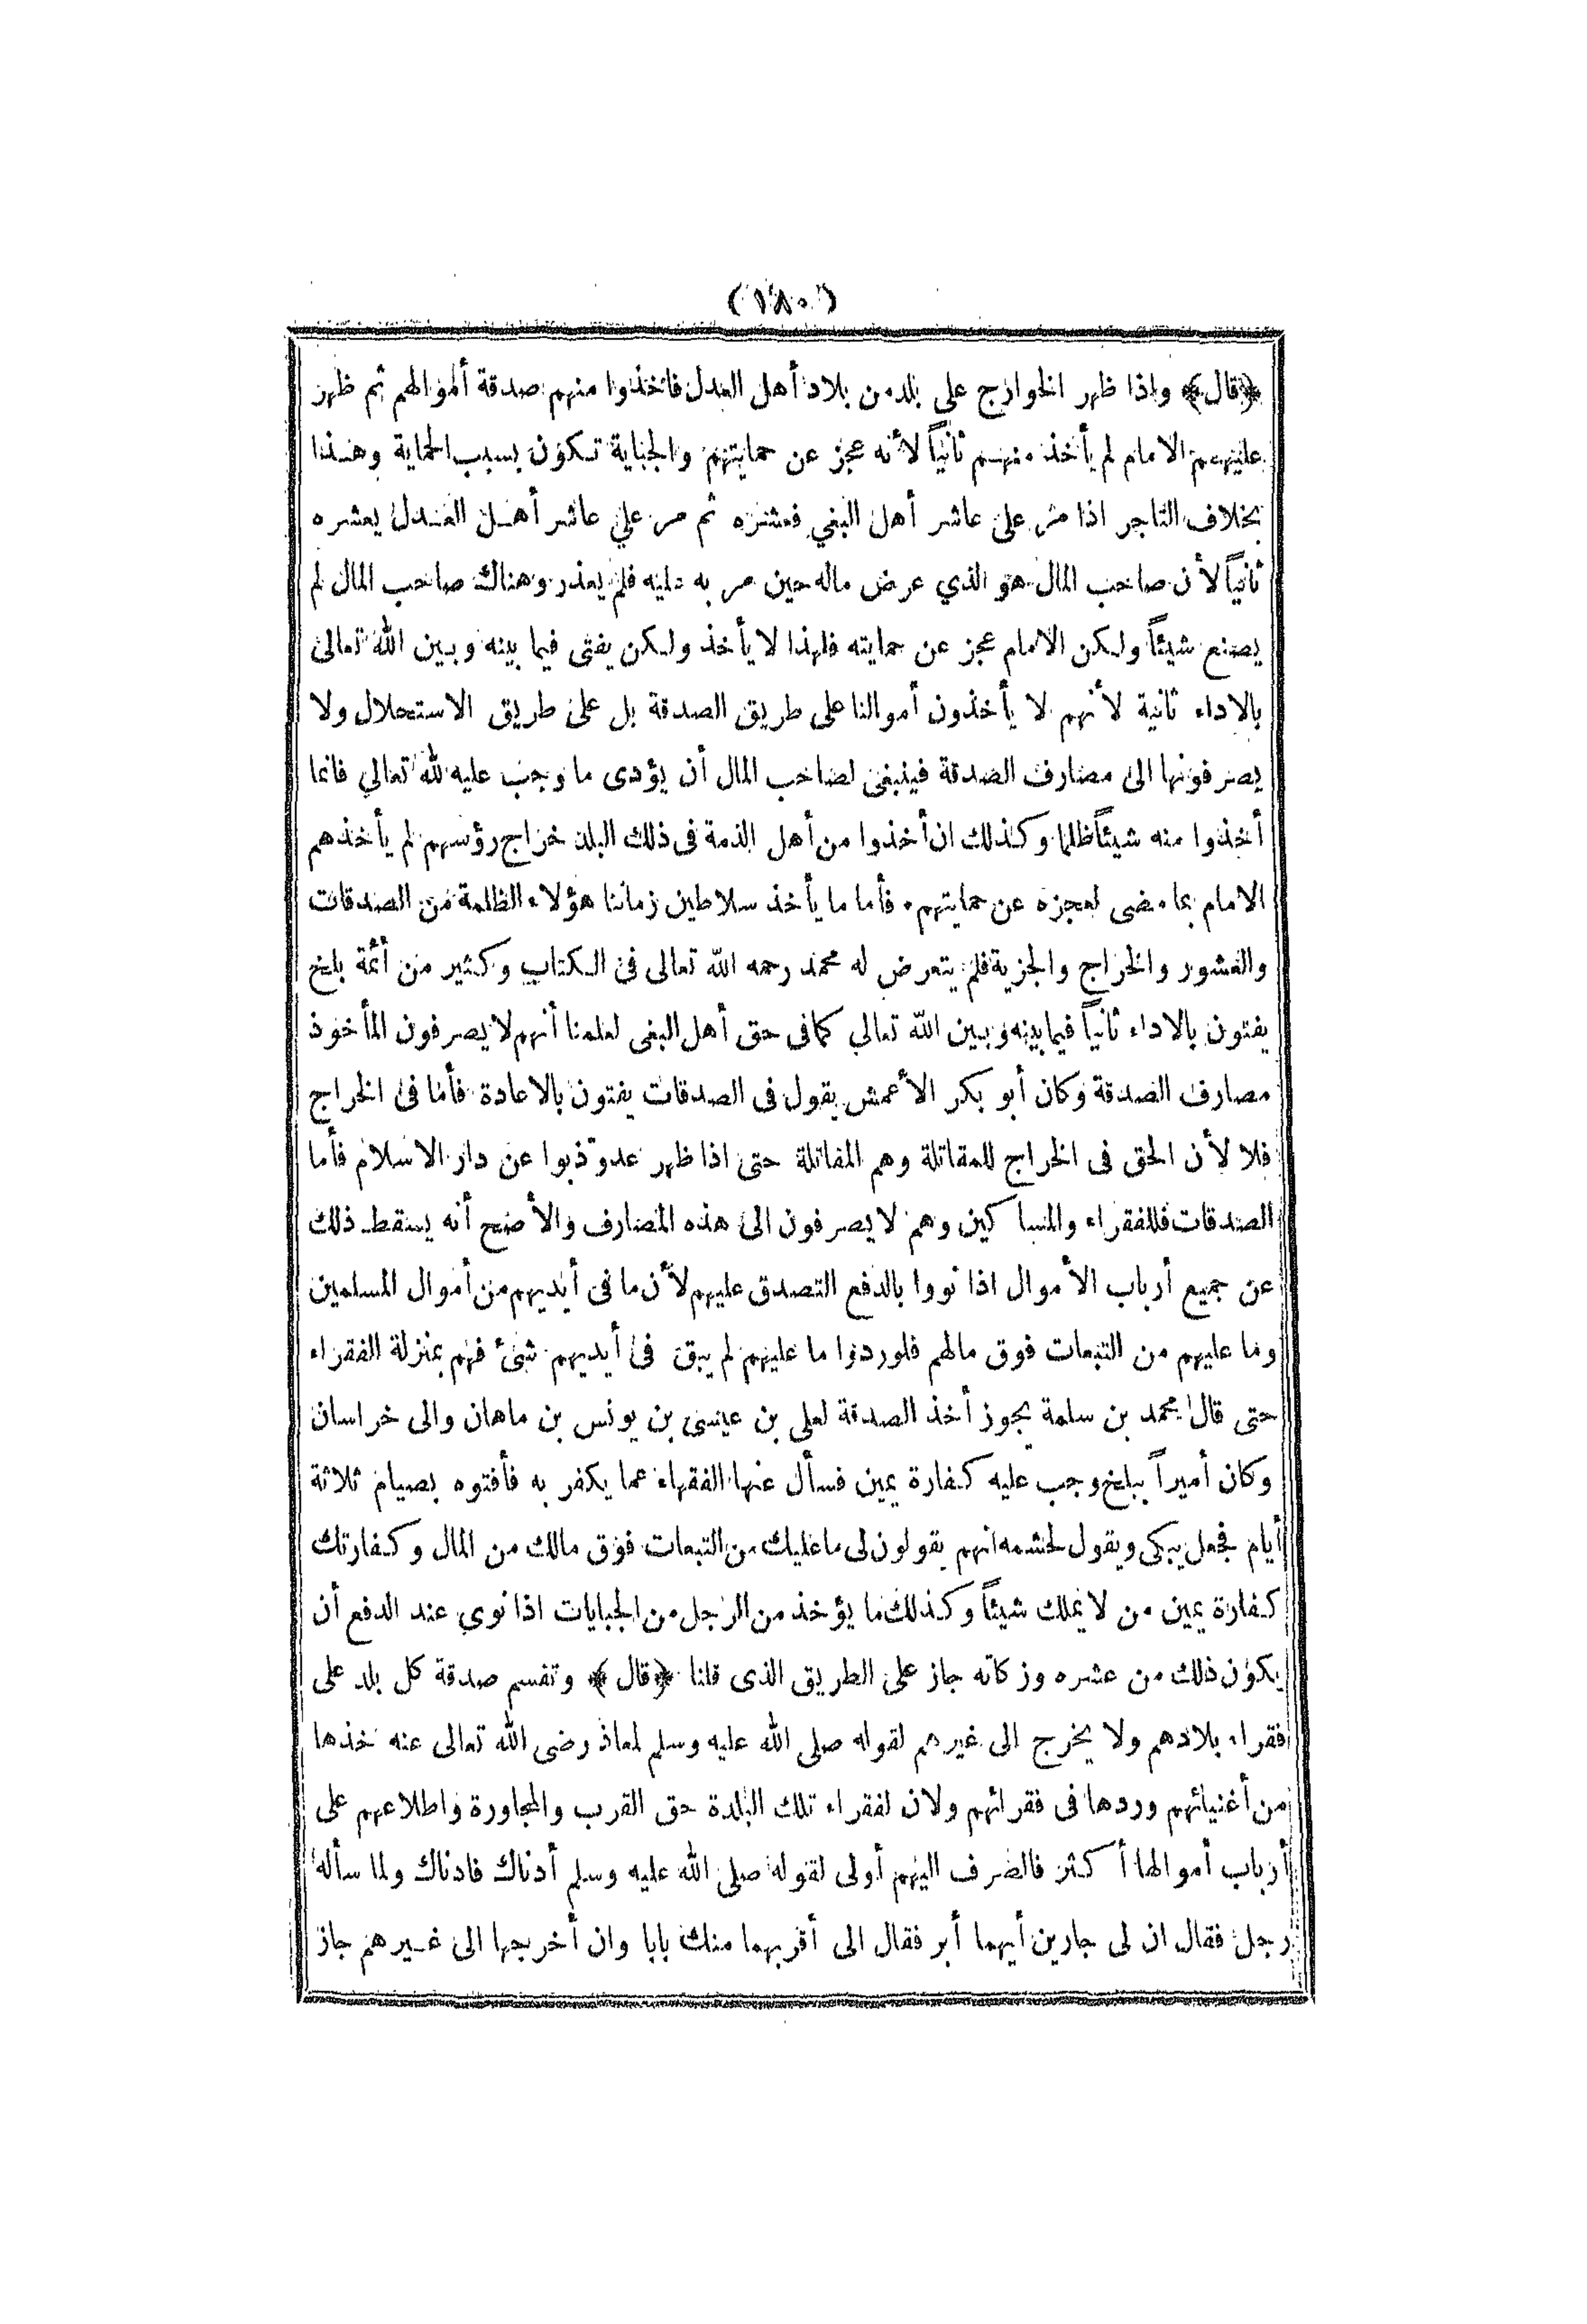 (١٨٠)
﴿قال﴾ واذا ظهر الخوارج على بلد من بلاد أهل العدل فأخذوا منهم صدقة أموالهم ثم ظهر
عليهم الامام لم يأخذ منهم ثانياً لأنه عجز عن حمايتهم والجباية تكون بسبب الحماية وهذا
بخلاف التاجر اذا مر على عاشر أهل البغي فعشره ثم مر علي عاشر أهل العدل يعشره
ثانياً لأن صاحب المال هو الذي عرض ماله حين مر به عليه فلم يعذر وهناك صاحب المال لم
يصنع شيئاً ولكن الامام عجز عن حمايته فلهذا لا يأخذ ولكن يفتى فيما بينه وبين الله تعالى
بالاداء ثانية لأنهم لا يأخذون أموالنا على طريق الصدقة بل على طريق الاستحلال ولا
يصرفونها الى مصارف الصدقة فينبغى لصاحب المال أن يؤدى ما وجب عليه لله تعالي فانما
أخذوا منه شيئاً ظلما وكذلك ان أخذوا من أهل الذمة فى ذلك البلد خراج رؤسهم لم يأخذهم
الامام بما مضى لعجزه عن حمايتهم . فأما ما يأخذ سلاطين زماننا هؤلاء الظلمة من الصدقات
والعشور والخراج والجزية فلم يتعرض له محمد رحمه الله تعالى فى الكتاب وكثير من أئمة بلخ
يفتون بالاداء ثانياً فيما بينه وبين الله تعالي كما فى حق أهل البغى لعلمنا أنهم لا يصرفون المأخوذ
مصارف الصدقة وكان أبو بكر الأعمش يقول فى الصدقات يفتون بالاعادة فأما فى الخراج
فلا لأن الحق فى الخراج للمقاتلة وهم المقاتلة حتى اذا ظهر عدو ذبوا عن دار الاسلام فأما
الصدقات فللفقراء والمساكين وهم لا يصرفون الى هذه المصارف والأصح أنه يسقط ذلك
عن جميع أرباب الأموال اذا نووا بالدفع التصدق عليهم لأن ما فى أيديهم من أموال المسلمين
وما عليهم من التبعات فوق مالهم فلو ردوا ما عليهم لم يبق فى أيديهم شىء فهم بمنزلة الفقراء
حتى قال محمد بن سلمة يجوز أخذ الصدقة لعلى بن عيسى بن يونس بن ماهان والى خراسان
وكان أميراً ببلخ وجب عليه كفارة يمين فسأل عنها الفقهاء عما يكفر به فأفتوه بصيام ثلاثة
أيام فجعل يبكى ويقول لحشمه انهم يقولون لى ما عليك من التبعات فوق مالك من المال وكفارتك
كفارة يمين من لا يملك شيئاً وكذلك ما يؤخذ من الرجل من الجبايات اذا نوي عند الدفع أن
يكون ذلك من عشره وزكاته جاز على الطريق الذى قلنا ﴿قال﴾ وتقسم صدقة كل بلد على
فقراء بلادهم ولا يخرج الى غيرهم لقوله صلى الله عليه وسلم لمعاذ رضى الله تعالى عنه خذها
من أغنيائهم وردها فى فقرائهم ولان لفقراء تلك البلدة حق القرب والمجاورة واطلاعهم على
أرباب أموالها أكثر فالصرف اليهم أولى لقوله صلى الله عليه وسلم أدناك فادناك ولما سأله
رجل فقال ان لى جارين أيهما أبر فقال الى أقربهما منك بابا وان أخرجها الى غيرهم جاز